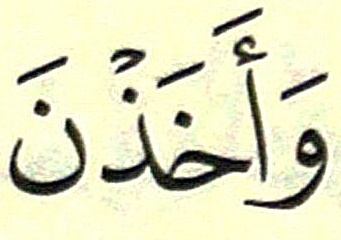 وَأَخَذْنَ